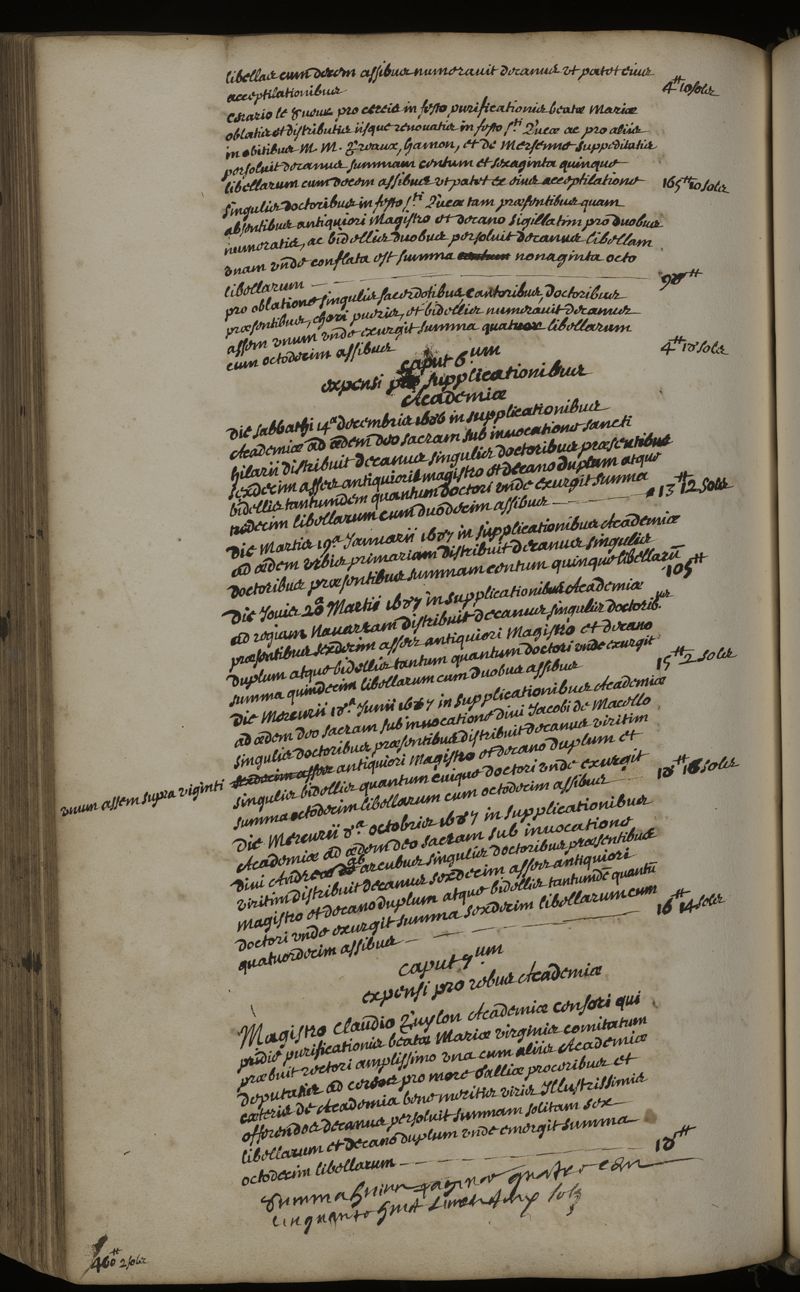 libellas cum decem assibus numeravit decanus ut patet eius
acceptilationibus 4ᵗᵗ 10 solz
pro cereis in festo purificationis beatæ Mariæ
oblatis et distributis iisque renovatis in festo sᵗⁱ Lucæ ac pro aliis
in obitibus M. M. Hamon, et de Mersenne suppeditatis
persoluit decanus summam centum et sexaginta quinque
libellarum cum decem assibus ut patet ex eius acceptilatione 165ᵗᵗ 10 solz
singulis doctoribus in festo sᵗⁱ Lucæ tam præsentibus quam
absentibus antiquiori Magistro et decano sigillatim pro duobus
numeratis, ac bidellis duobus persoluit decanus libellam
unam unde conflata est summa nonaginta octo
libellarum 98ᵗᵗ
pro oblatione singulis sacerdotibus cantoribus, doctoribus
præsentibus, chori pueris, et bidellis numeravit decanus
assem unum unde exurgit summa quatuor libellarum
cum octodecim assibus 4ᵗᵗ 18 solz
caput 6ᵘᵐ
expensi pro supplicationibus
Academiæ
Die sabbathi 14ᵃ decembris 1686 in supplicationibus
Academiæ ad ædem deo sacram sub invocatione sancti
hilarii distribuit decanus singulis doctoribus præsentibus
sexdecim asses antiquiori magistro et decano duplum atque
bidellis tantumdem quantum doctori unde exurgit summa
tredecim libellarum cum duodecim assibus 13ᵗᵗ 12 solz
Die Martis 19ᵃ Januarii 1687 in supplicationibus Academiæ
ad ædem urbis primariam distribuit decanus singulis
doctoribus præsentibus summam centum quinque libellarū 105ᵗᵗ
Die Jovis 28 Martii 1687 in supplicationibus Academiæ
ad regiam Navarram distribuit decanus singulis doctoribᵘˢ
præsentibus sexdecim asses antiquiori Magistro et decano
duplum atque bidellis tantum quantum doctori unde exurgit
summa quindecim libellarum cum duobus assibus 15ᵗᵗ 2 solz
Die Mercurii 18ᵃ Junii 1687 in supplicationibus Academiæ
ad ædem deo sacram sub invocatione divi Jacobi de Macello
singulis doctoribus præsentibus distribuit decanus viritim
unum assem supra viginti sexdecim asses antiquiori Magistro et decano duplum et
singulis bidellis quantum cuique doctori unde exurgit
summa octodecim libellarum cum octodecim assibus 18ᵗᵗ 18 solz
Die Mercurii 8ᵃ octobris 1687 in supplicationibus
Academiæ ad ædem deo sacram sub invocatione
divi Andreæ ab arcubus singulis doctoribus præsentibus
viritim distribuit decanus sexdecim asses antiquiori
Magistro et decano duplum atque bidellis tantumde quantū
doctori unde exurgit summa sexdecim libellarum cum
quatuordecim assibus 16ᵗᵗ 14 solz
caput 7ᵘᵐ
expensi pro rebus Academiæ
Magistro Claudio Academiæ censori qui
pridie purificationis beatæ Mariæ virginis comitatum
præbuit rectori amplissimo una cum aliis Academiæ
deputatis ad cereos pro more Galliæ proceribus et
cæteris de Academia bene meritis viris Illustrissimis
offerendos decanus persoluit summam solitam sex
libellarum et decano duplum unde emergit summa
octodecim libellarum 18ᵗᵗ
summa huius paginæ quatre cen
cinquante huit livres dix solz
460ᵗᵗ 2 solz